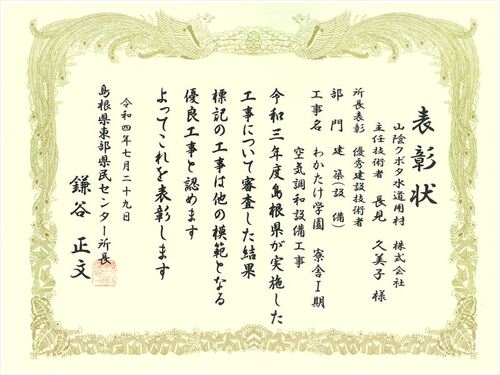 表彰状
山陰クボタ水道用材 株式会社
主任技術者 長見 久美子 様
所長表彰 優秀建設技術者
部門 建築(設備)
工事名 わかたけ学園 寮舎Ⅰ期
空気調和設備工事
令和三年度島根県が実施した
工事について審査した結果
標記の工事は他の模範となる
優良工事と認めます
よってこれを表彰します
令和四年七月二十九日
島根県東部県民センター所長
鎌谷 正文